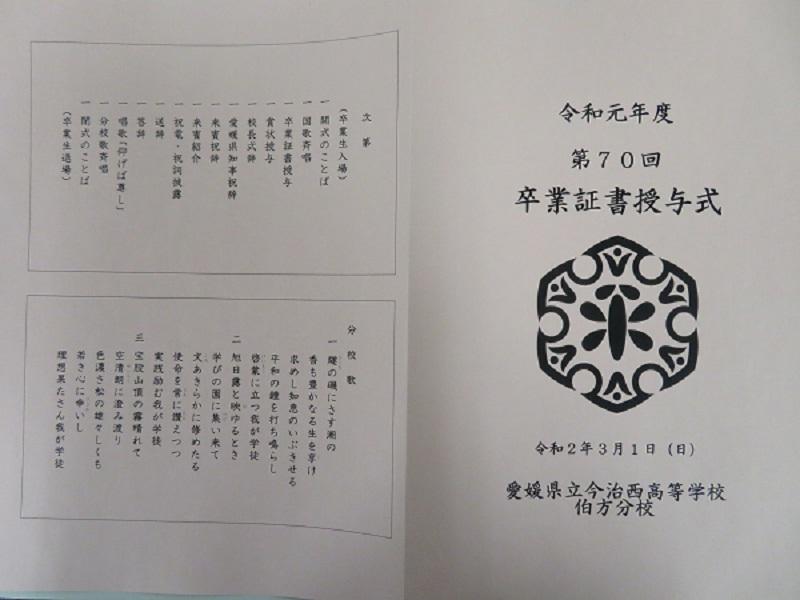 令和元年度
第７０回
卒業証書授与式
令和２年３月１日（日）
愛媛県立今治西高等学校
伯方分校
次第
（卒業生入場）
一 開式のことば
一 国歌斉唱
一 卒業証書授与
一 賞状授与
一 校長式辞
一 愛媛県知事祝辞
一 来賓祝辞
一 来賓紹介
一 祝電・祝詞披露
一 送辞
一 答辞
一 唱歌「仰げば尊し」
一 分校歌斉唱
一 閉式のことば
（卒業生退場）
分校歌
一 磯にさす潮の
香も豊かなる生を享け
求めし知恵のいぶきせる
平和の鐘を打ち鳴らし
啓蒙に立つ我が学徒
二 旭日露と映ゆるとき
学びの園に集い来て
文あきらかに修めたる
使命を常に讃えつつ
実践励む我が学徒
三 宝股山頂の霧晴れて
空清朗に澄み渡り
色濃き松の雄々しくも
若き心に幸いし
理想果たさん我が学徒